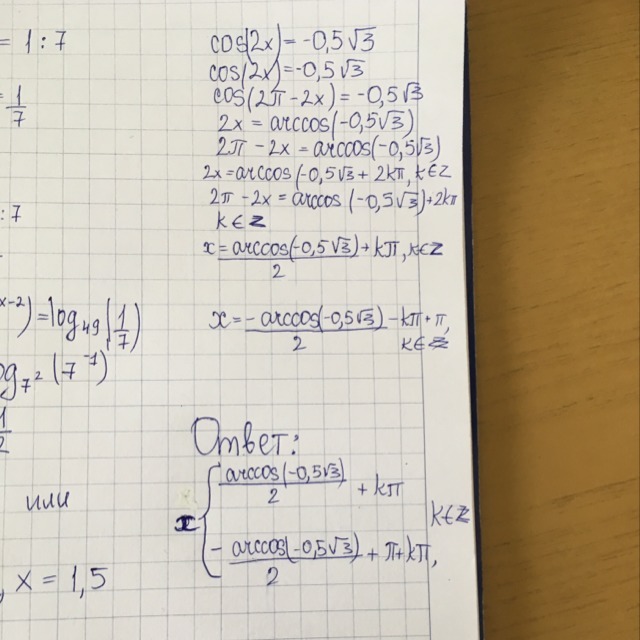 = 1 : 7
= 1/7
: 7
x-2) = log₄₉(1/7)
og₇²(7⁻¹)
1/2
или
, x = 1,5
cos(2x) = -0,5√3
cos(2x) = -0,5√3
cos(2π - 2x) = -0,5√3
2x = arccos(-0,5√3)
2π - 2x = arccos(-0,5√3)
2x = arccos(-0,5√3 + 2kπ, k∈Z
2π - 2x = arccos(-0,5√3) + 2kπ
k∈Z
x = arccos(-0,5√3)/2 + kπ, k∈Z
x = -arccos(-0,5√3)/2 - kπ + π,
k∈Z
Ответ:
x { arccos(-0,5√3)/2 + kπ
k∈Z
- arccos(-0,5√3)/2 + π + kπ,